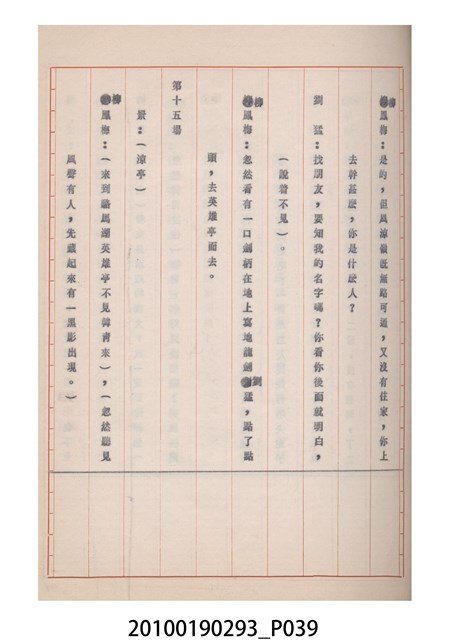 柳鳳梅：是的，但風掉嶺既無路可通，又沒有住家，你上
去幹甚麼，你是什麼人？
劉　猛：找朋友，要知我的名字嗎？你看你後面就明白，
（說着不見）。
柳鳳梅：忽然看有一口劍柄在地上寫地龍劍劉猛，點了點
頭，去英雄亭而去。
第十五場
景：（涼亭）
柳鳳梅：（來到馬湖英雄亭不見韓青來），（忽然聽見
風聲有人，先藏起來有一黑影出現。）
20100190293_P039